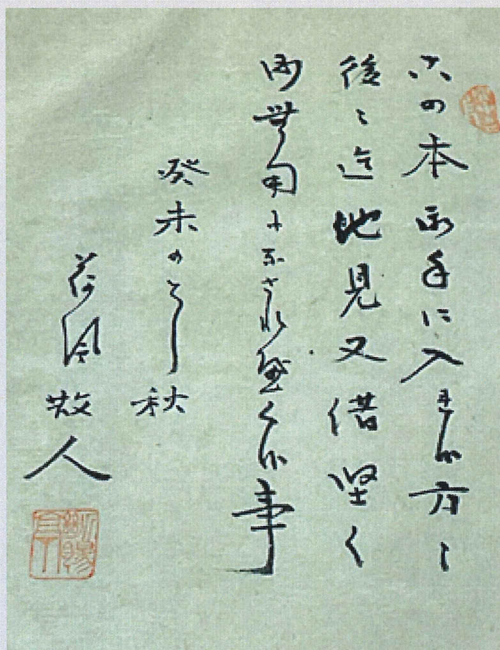 この本御手に入り候方ゝ
後ゝ迄他見又借堅く
御無用になされ度く候事
癸未のとし秋
荷風散人